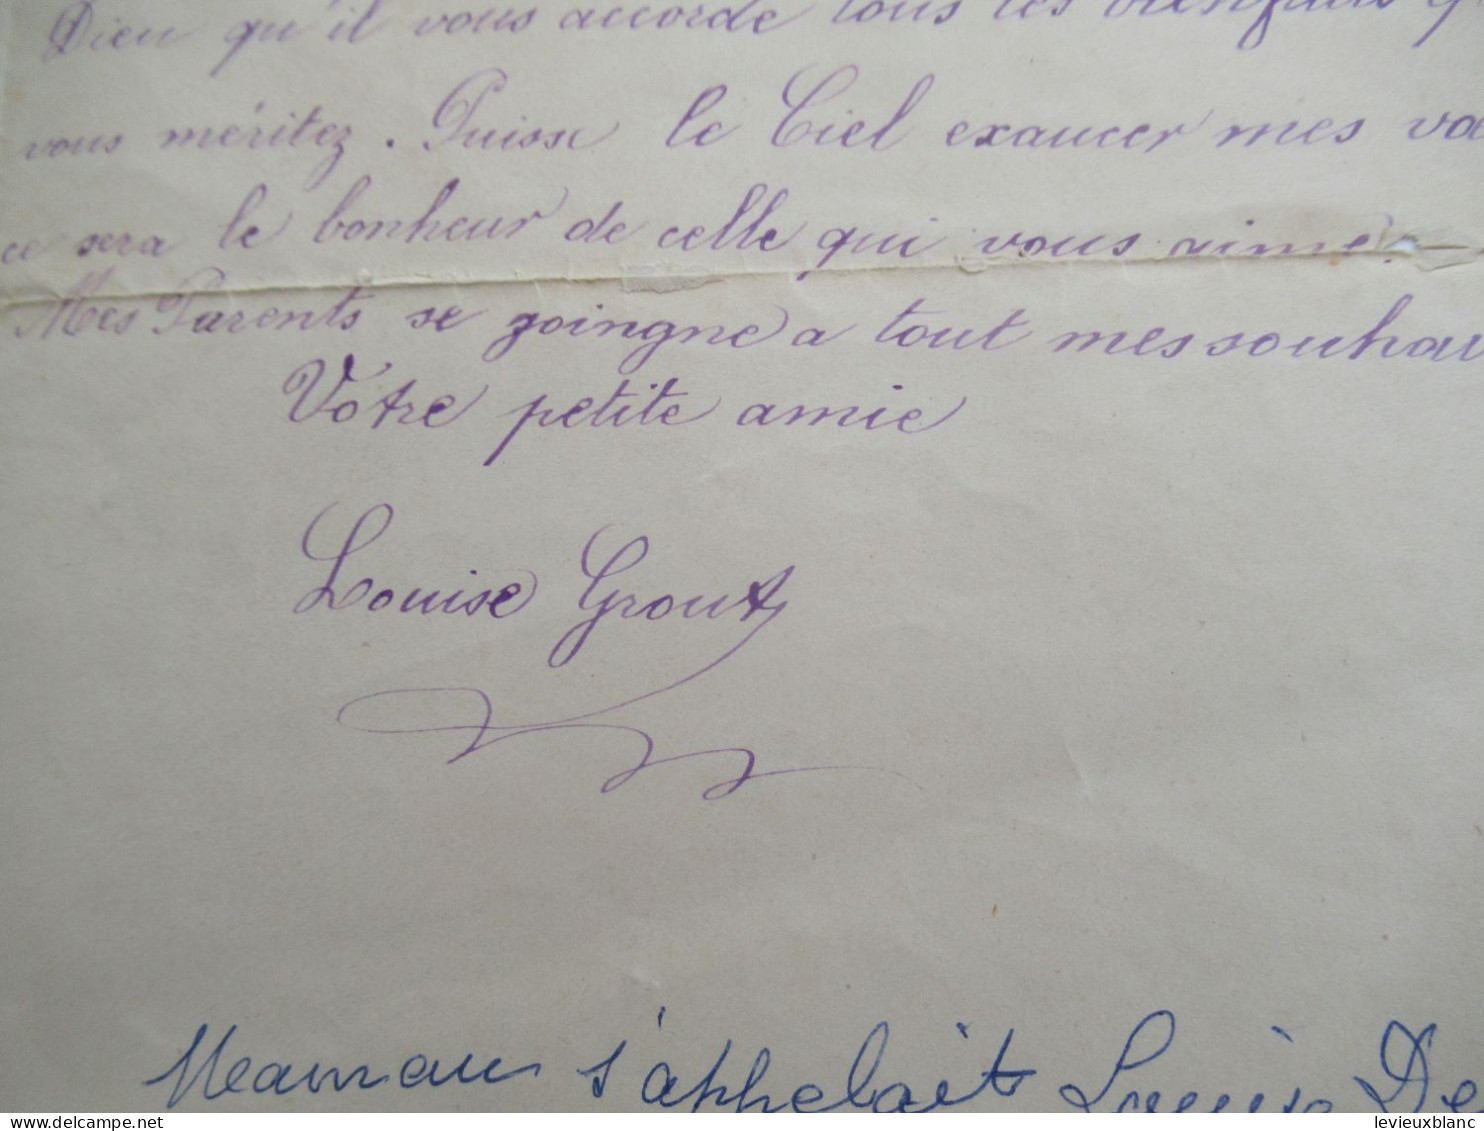 Dieu qu'il vous accorde tous les bienfaits
vous méritez. Puisse le Ciel exaucer mes
ce sera le bonheur de celle qui vous aime.
Mes Parents se joingne a tout mes souhai
Votre petite amie
Louise Grout
Maman s'appelait Louise De
delcampe.net
levieuxblanc